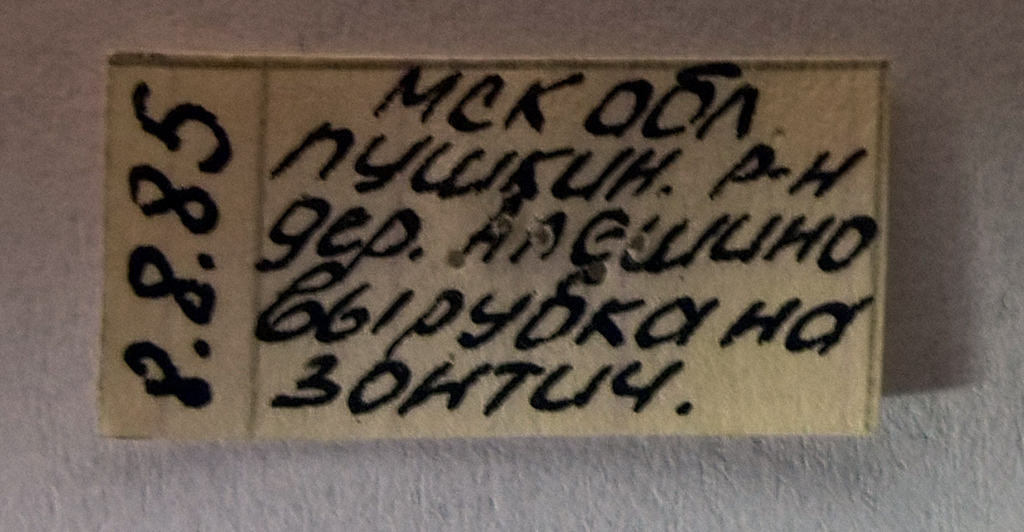 8.8.85
МСК ОБЛ.
ПУШКИН. Р-Н
дер. Алешино
вырубка на
зонтич.